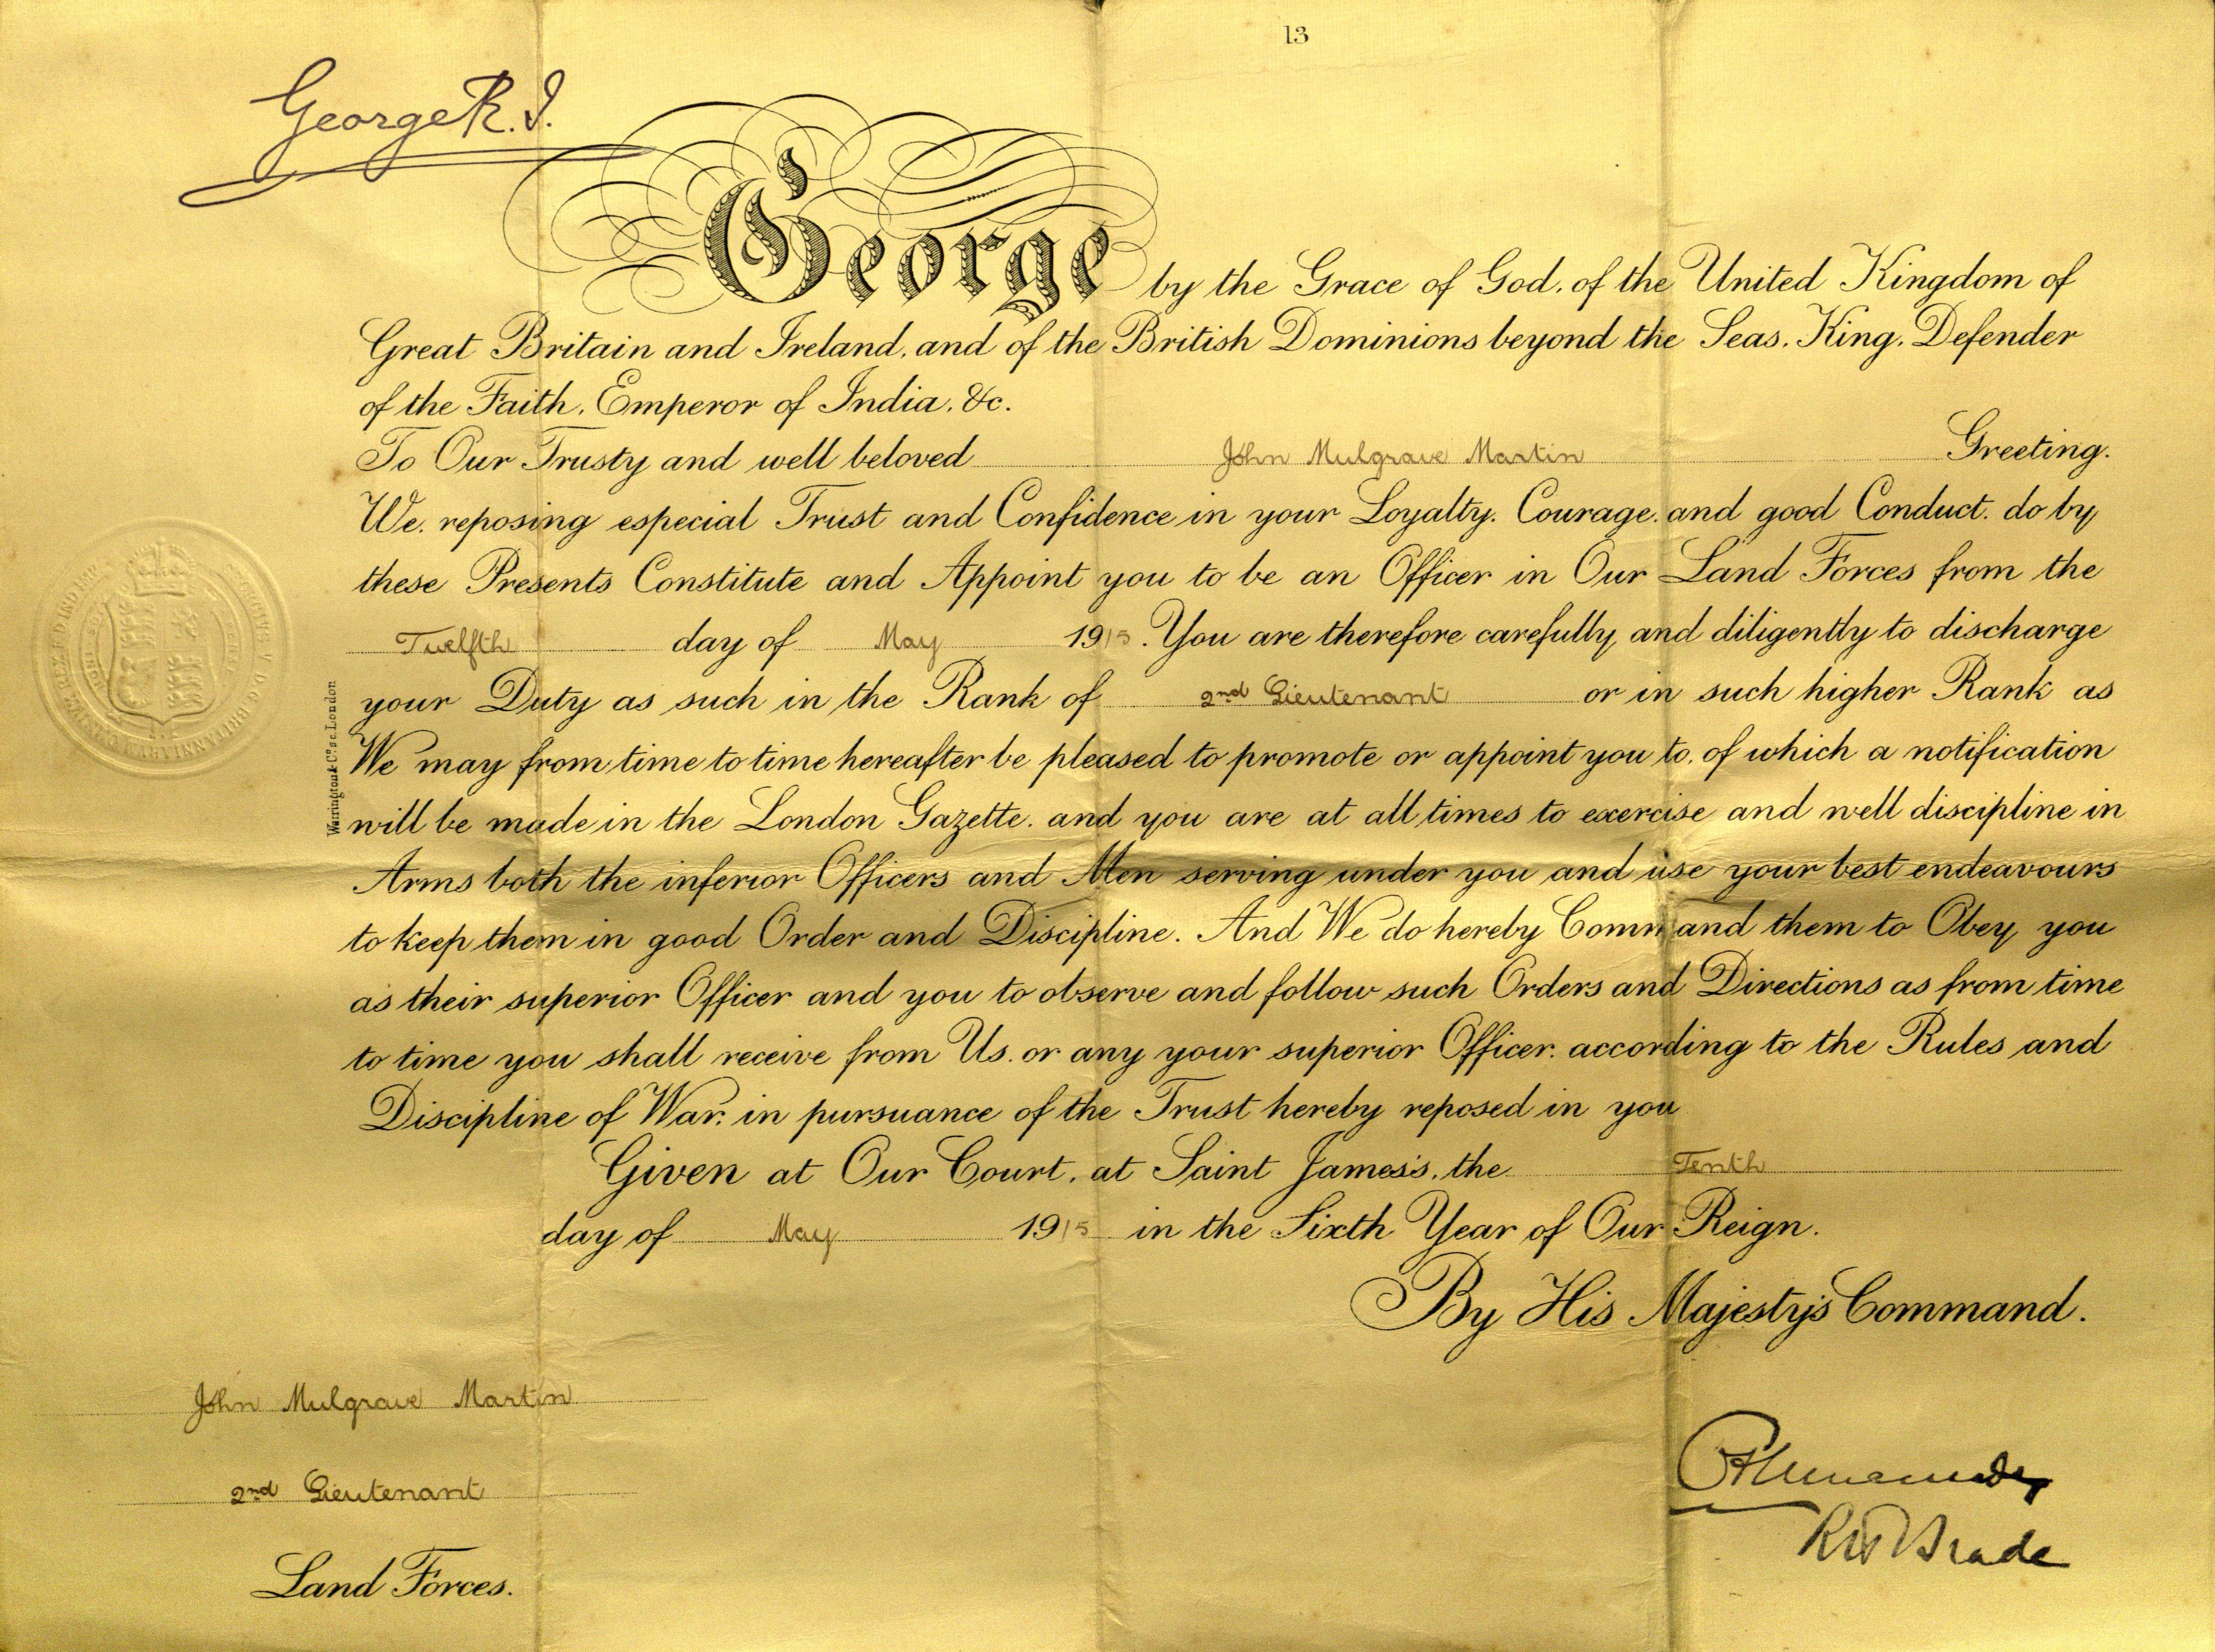 13
George R.I.
George by the Grace of God, of the United Kingdom of
Great Britain and Ireland, and of the British Dominions beyond the Seas, King, Defender
of the Faith, Emperor of India, &c.
To Our Trusty and well beloved John Mulgrave Martin Greeting.
We, reposing especial Trust and Confidence in your Loyalty, Courage, and good Conduct, do by
these Presents Constitute and Appoint you to be an Officer in Our Land Forces from the
Twelfth day of May 1915. You are therefore carefully and diligently to discharge
your Duty as such in the Rank of 2nd Lieutenant or in such higher Rank as
We may from time to time hereafter be pleased to promote or appoint you to, of which a notification
will be made in the London Gazette, and you are at all times to exercise and well discipline in
Arms both the inferior Officers and Men serving under you and use your best endeavours
to keep them in good Order and Discipline. And We do hereby Command them to Obey you
as their superior Officer and you to observe and follow such Orders and Directions as from time
to time you shall receive from Us, or any your superior Officer, according to the Rules and
Discipline of War, in pursuance of the Trust hereby reposed in you
Given at Our Court, at Saint James's, the Tenth
day of May 1915 in the Sixth Year of Our Reign.
By His Majesty's Command.
John Mulgrave Martin
2nd Lieutenant
Land Forces.
RH Brade
Warrington & Co. sc. London